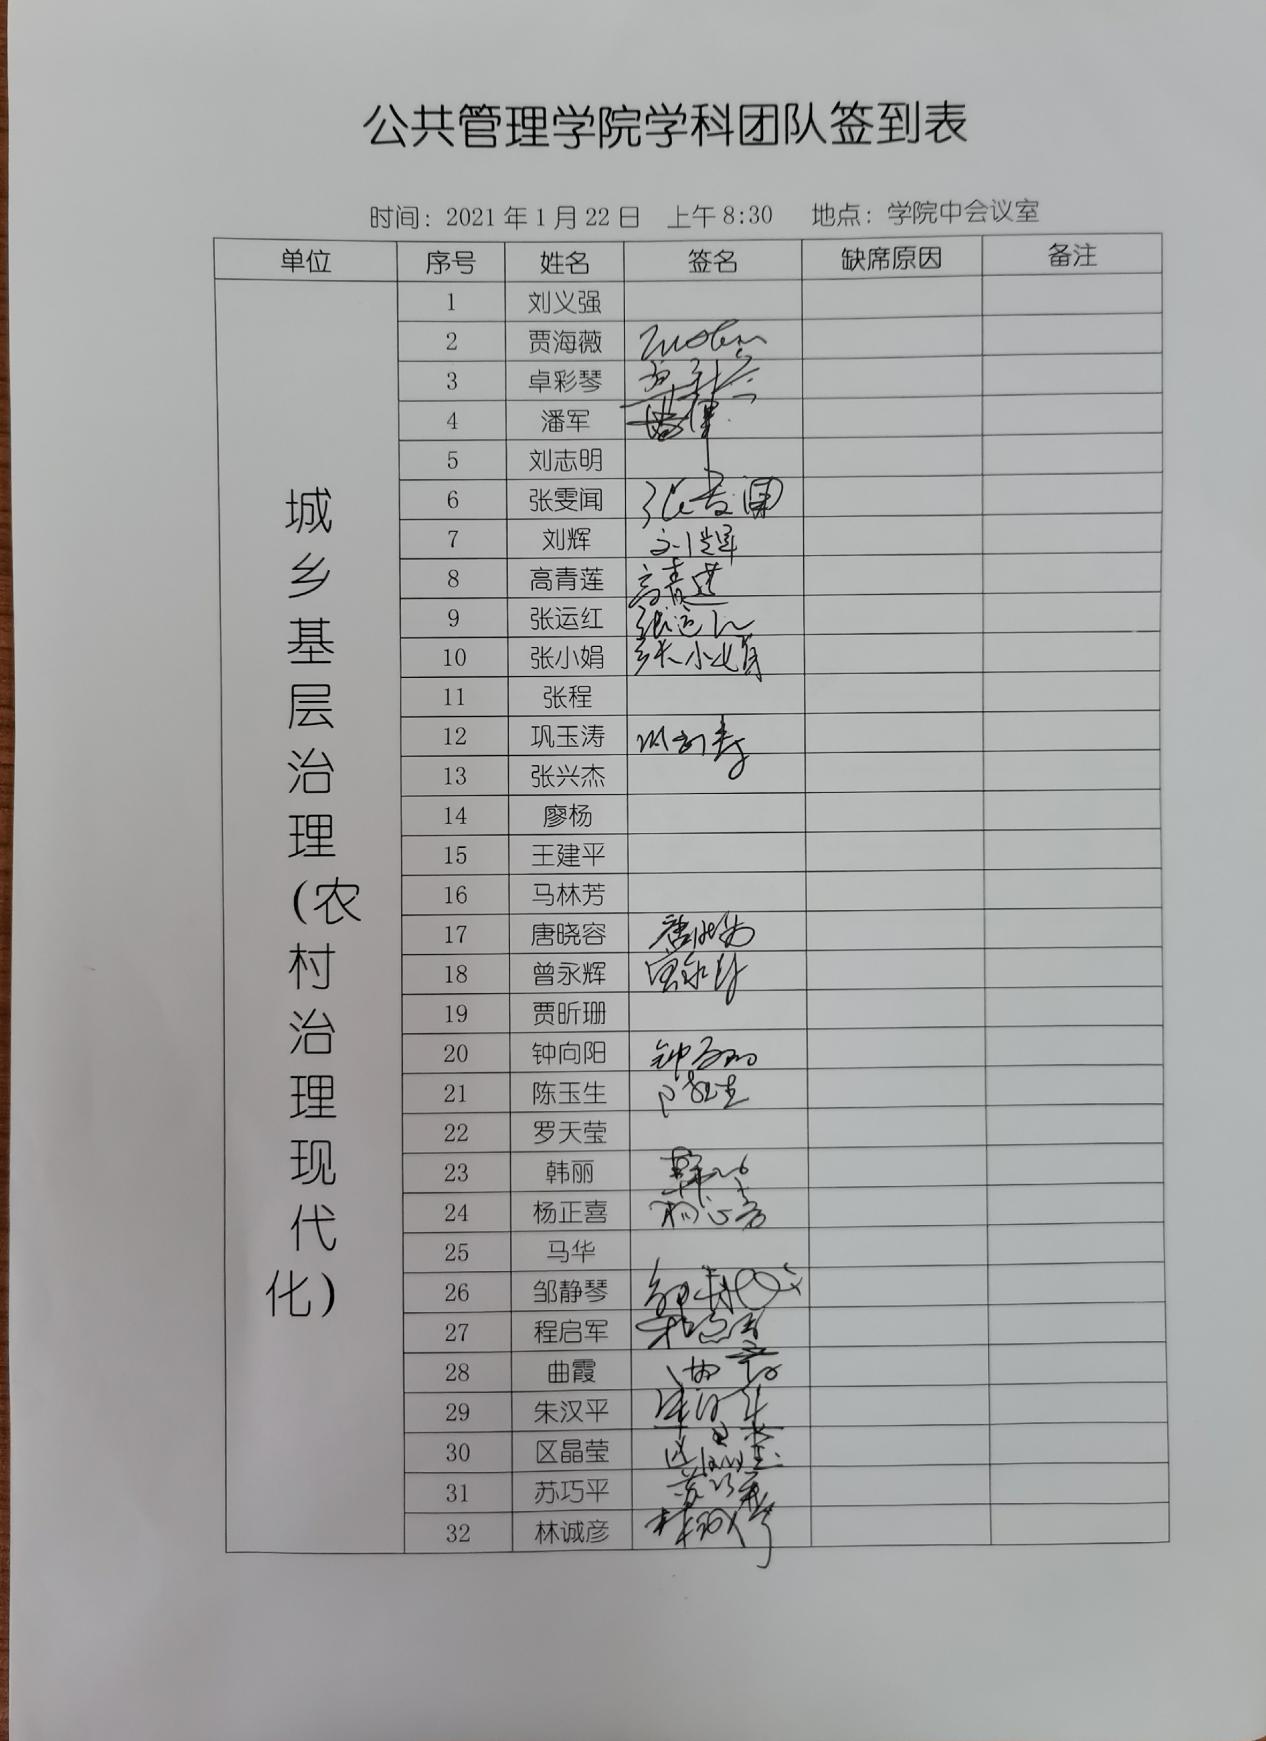 公共管理学院学科团队签到表
时间：2021年1月22日 上午8:30 地点：学院中会议室
单位 序号 姓名 签名 缺席原因 备注
城乡基层治理(农村治理现代化)
1 刘义强
2 贾海薇
3 卓彩琴
4 潘军
5 刘志明
6 张雯闻 张雯闻
7 刘辉 刘辉
8 高青莲 高青莲
9 张运红 张运红
10 张小娟 张小娟
11 张程
12 巩玉涛 巩玉涛
13 张兴杰
14 廖杨
15 王建平
16 马林芳
17 唐晓容 唐晓容
18 曾永辉 曾永辉
19 贾昕珊
20 钟向阳 钟向阳
21 陈玉生 陈玉生
22 罗天莹
23 韩丽 韩丽
24 杨正喜 杨正喜
25 马华
26 邹静琴
27 程启军 程启军
28 曲霞 曲霞
29 朱汉平 朱汉平
30 区晶莹 区晶莹
31 苏巧平 苏巧平
32 林诚彦 林诚彦